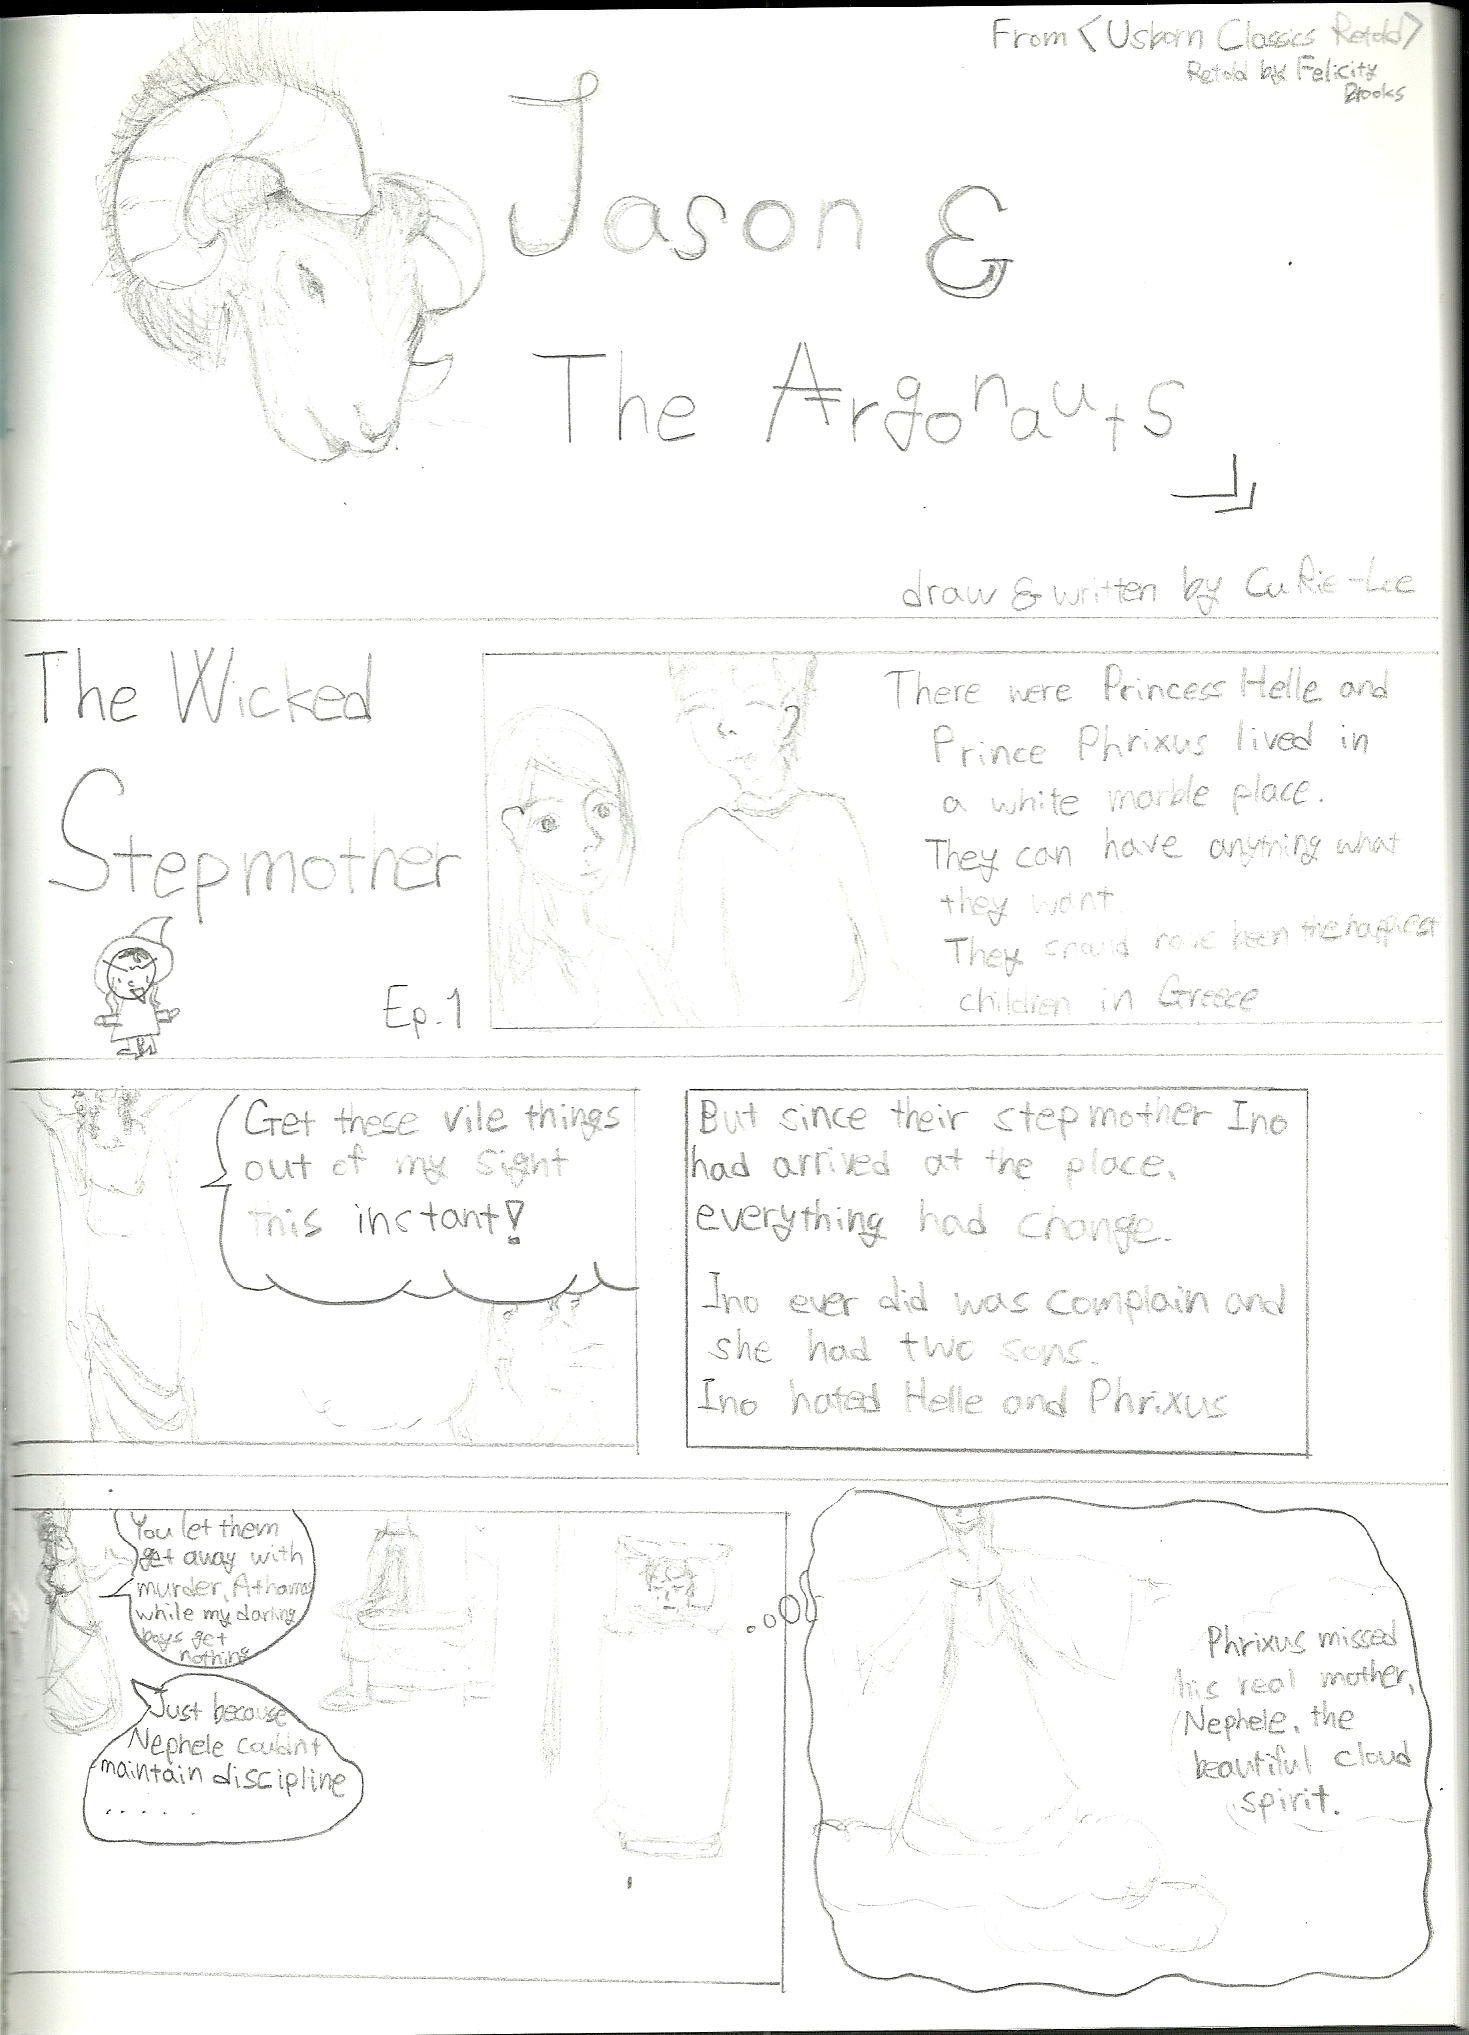 From <Usborn Classics Retold>
Retold by Felicity
Brooks
Jason &
The Argonauts
draw & written by CuRie-Lee
The Wicked
Stepmother
Ep.1
There were Princess Helle and
Prince Phrixus lived in
a white marble place.
They can have anything what
they want.
They should have been the happiest
children in Greece
Get these vile things
out of my sight
this instant!
But since their stepmother Ino
had arrived at the place,
everything had change.
Ino ever did was complain and
she had two sons.
Ino hated Helle and Phrixus
You let them
get away with
murder, Athamas
while my darling
boys get
nothing
Just because
Nephele couldn't
maintain discipline
......
Phrixus missed
his real mother,
Nephele, the
beautiful cloud
spirit.